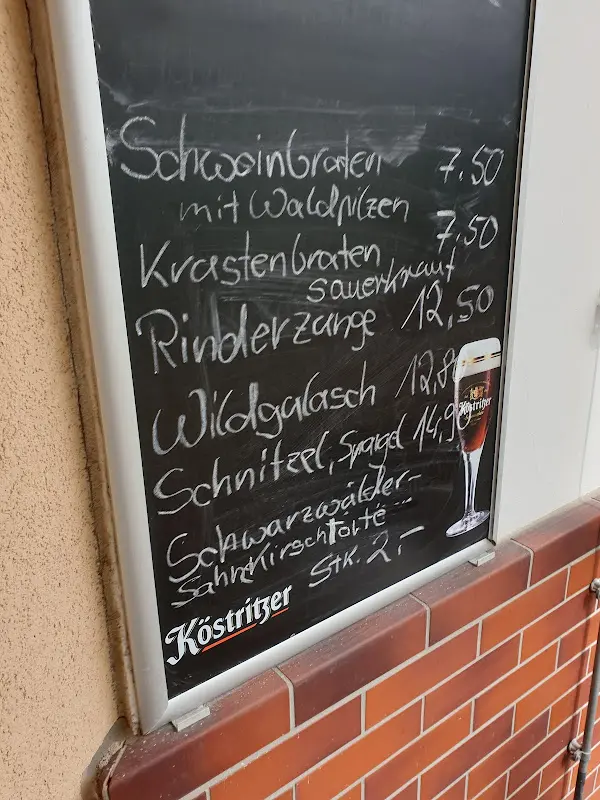 Schweinbraten 7.50
mit Waldpilzen
Krastenbraten 7.50
Sauerkraut
Rinderzunge 12,50
Wildgulasch 12,8
Schnitzel, Spargel 14,90
Schwarzwälder-
Sahnekirschtorte
Stk. 2,-
Köstritzer
Köstritzer